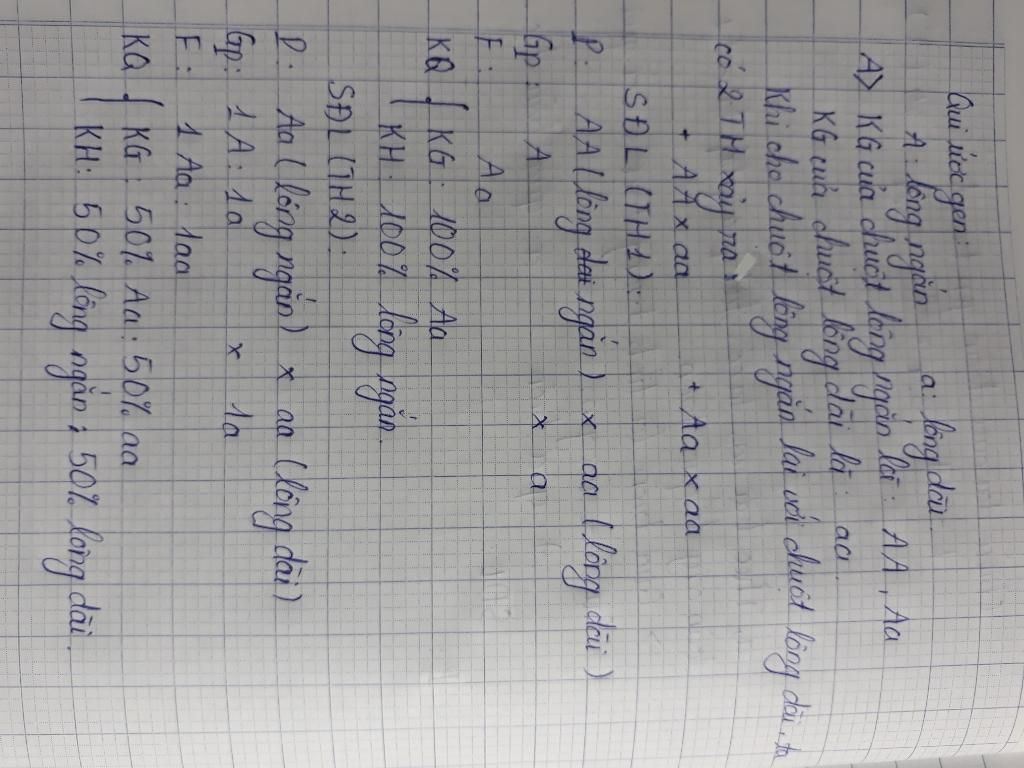 Qui ước gen:
A: lông ngắn a: lông dài.
A> KG của chuột lông ngắn là: AA, Aa
KG của chuột lông dài là: aa.
Khi cho chuột lông ngắn lai với chuột lông dài, ta
có 2 TH xảy ra:
+ AA x aa + Aa x aa
SĐL (TH1):
P: AA (lông dài ngắn) x aa (lông dài)
Gp: A x a
F: Aa
KQ { KG: 100% Aa
KH: 100% lông ngắn.
SĐL (TH2):
P: Aa (lông ngắn) x aa (lông dài)
Gp: 1A: 1a x 1a
F: 1Aa: 1aa
KQ { KG: 50% Aa: 50% aa
KH: 50% lông ngắn; 50% lông dài.